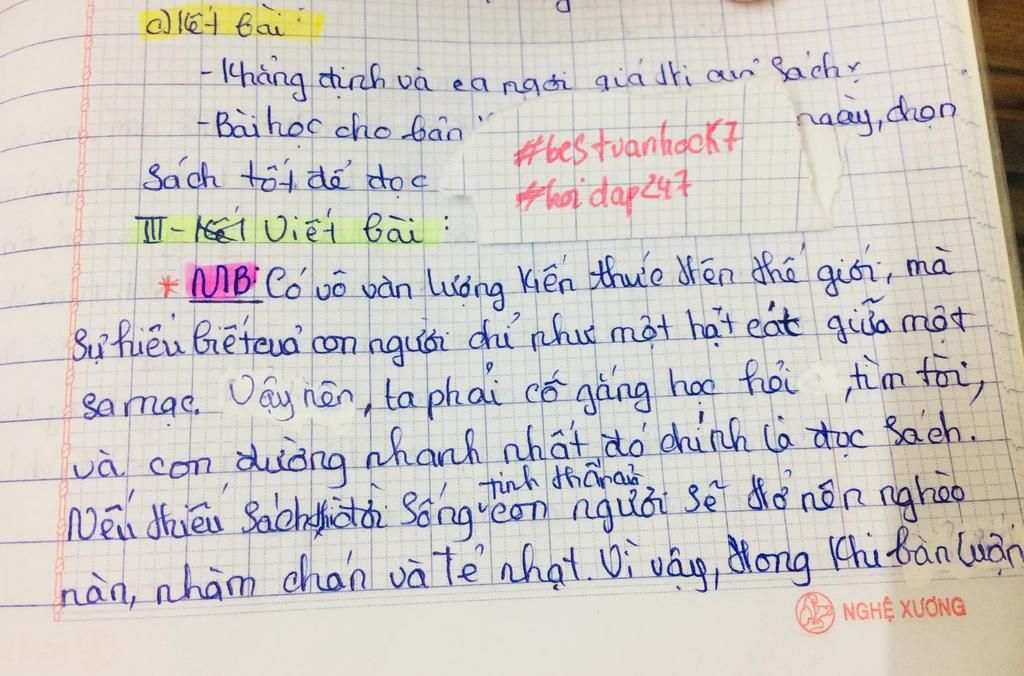 c) Kết bài:
- Khẳng định và ca ngợi giá trị của sách.
- Bài học cho bản ngày, chọn
#bestvanhock7
sách tốt để đọc
#hoidap247
III - Kết Viết bài:
* MB: Có vô vàn lượng kiến thức trên thế giới, mà
sự hiểu biết của con người chỉ như một hạt cát giữa một
sa mạc. Vậy nên, ta phải cố gắng học hỏi, tìm tòi,
và con đường nhanh nhất đó chính là đọc sách.
tinh thần của
Nếu thiếu sách thì đời sống con người sẽ trở nên nghèo
nàn, nhàm chán và tẻ nhạt. Vì vậy, trong khi bàn luận
NGHỆ XƯƠNG